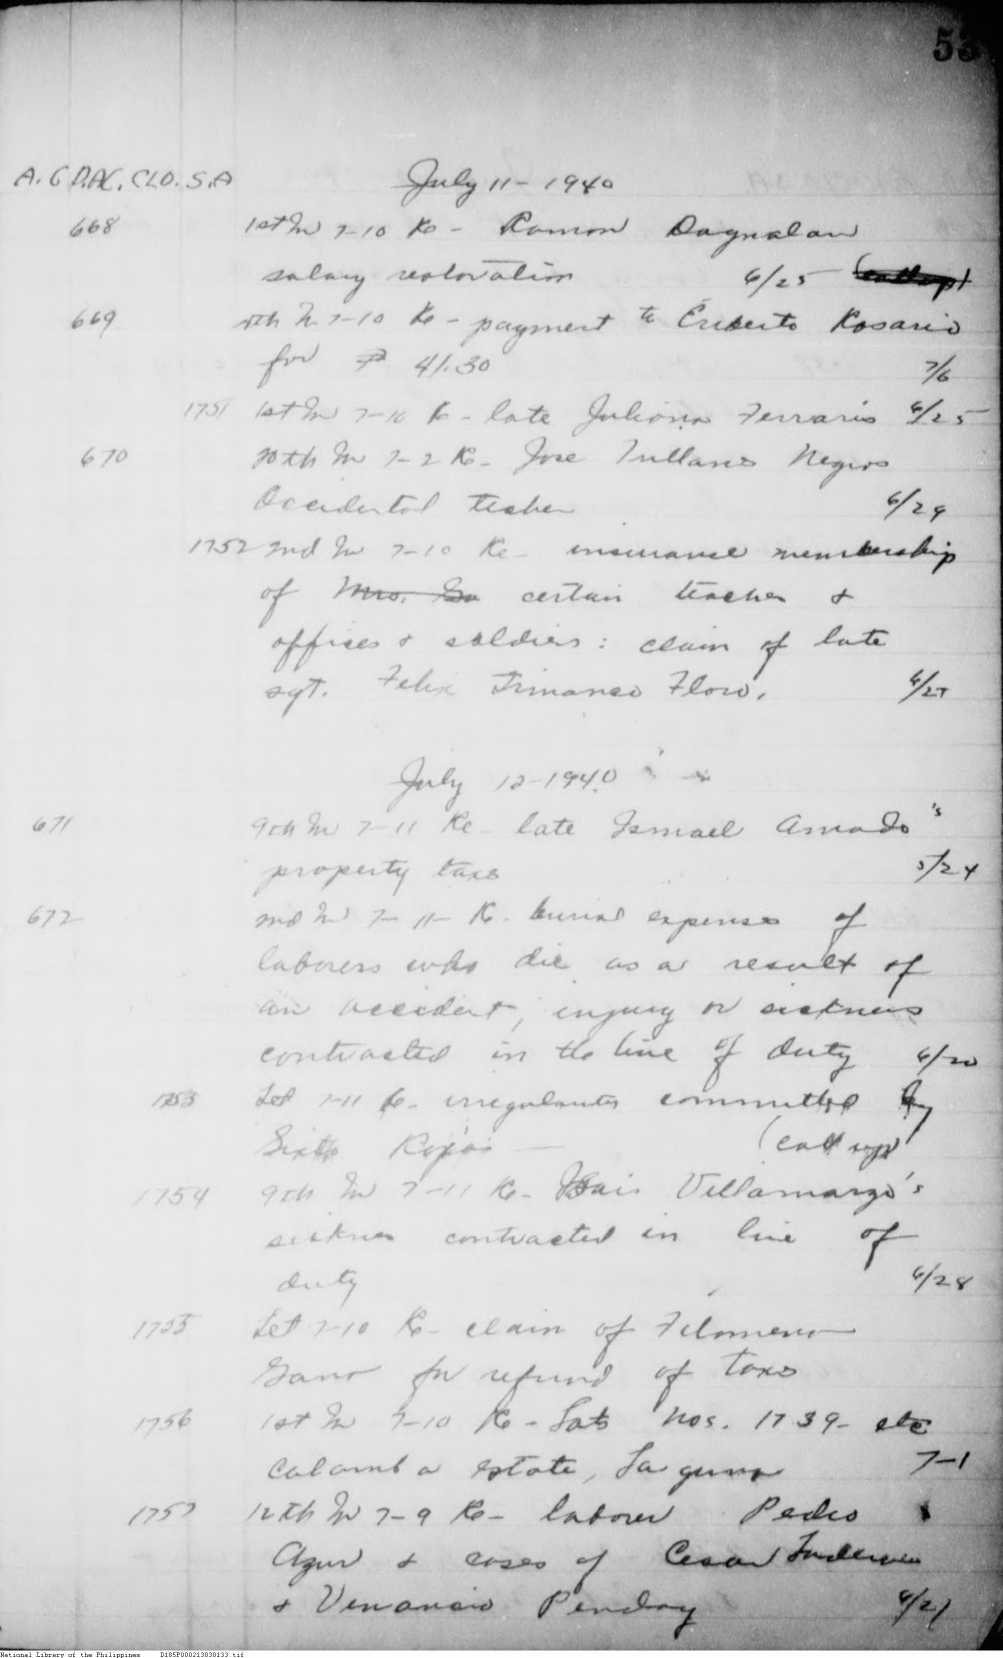 53
A. G D. AC. CLO. S. A
July 11 - 1940
668 1st In 7-10 Re - Ramon Dagnalan
salary restoration 6/25
669 4th In 7-10 Re - payment to Eriberto Rosario
for ₱ 41.30 7/6
1751 1st In 7-10 Re - late Juliana Ferraris 6/25
670 10th In 7-2 Re - Jose Tullanes Negros
Occidental teacher 6/29
1752 2nd In 7-10 Re - insurance membership
of Mrs. certain teacher &
offices & soldiers : claim of late
sgt. Felix Flow. 6/27
July 12 - 1940
671 9th In 7-11 Re - late Ismael Amado's
property taxs 5/24
672 2nd In 7-11- Re. burial expenses of
laborers who die as a result of
an accident, injury or sickness
contracted in the line of duty 6/20
1753 Let 7-11 Re - irregularities committed by
Sixto Roxas (call up)
1754 9th In 7-11 Re - Villamarzo's
sickness contracted in line of
duty 6/28
1755 Let 7-10 Re - claim of Filomeno
Gano for refund of taxs
1756 1st In 7-10 Re - Lots Nos. 1739- etc
Calamba estate, Laguna 7-1
1757 12th In 7-9 Re - laborer Pedro
Azur & cases of Cesar
& Venancio Penday 6/21
National Library of the Philippines D185P000213030133.tif